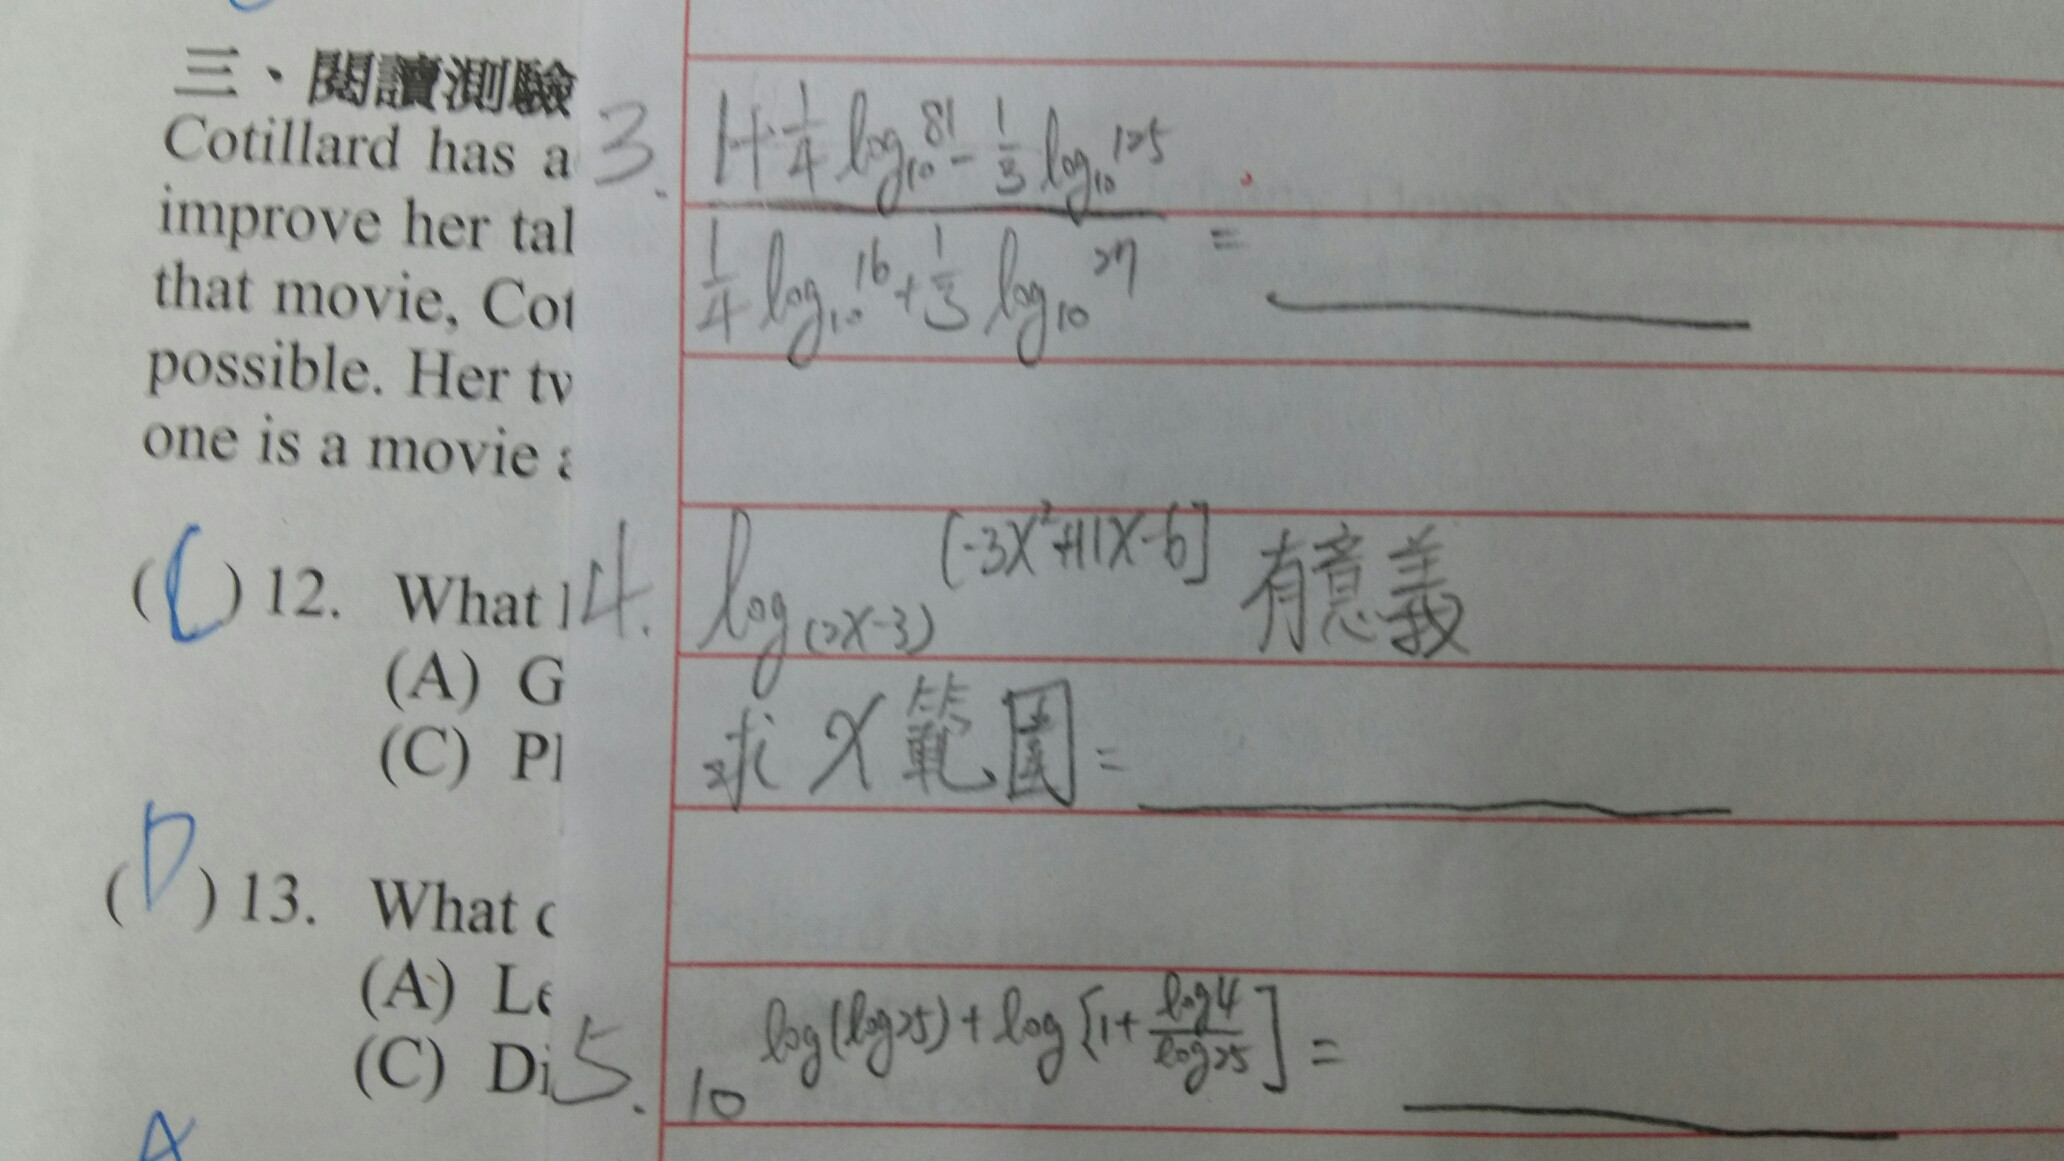 三、閱讀測驗
Cotillard has a
improve her tal
that movie, Cot
possible. Her tw
one is a movie a
(C) 12. What l
(A) G
(C) Pl
(D) 13. What c
(A) Le
(C) Di
A
3. 1+1/4 log₁₀81 - 1/3 log₁₀125
1/4 log₁₀16 + 1/3 log₁₀27 =
4. log(2x-3) [-3x²+11x-6] 有意義
求 x 範圍 =
5. 10 log(log25) + log[1+ log4/log25] =